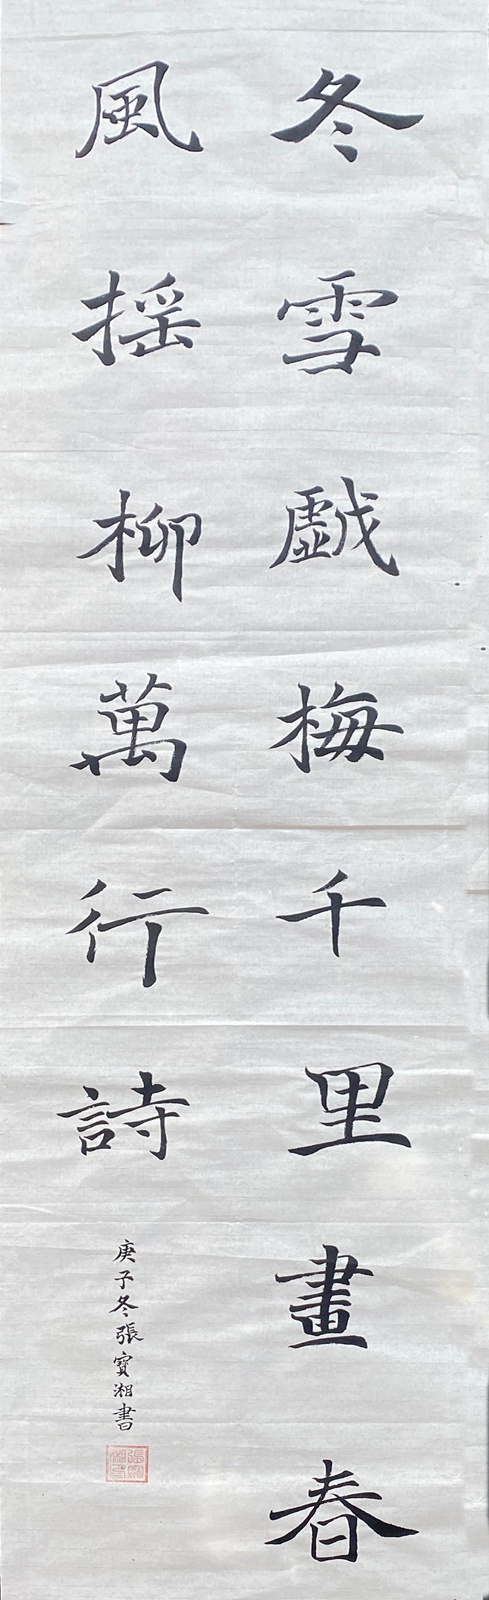 冬雪戯梅千里畫春
風揺柳萬行詩
庚子冬張寶湘書